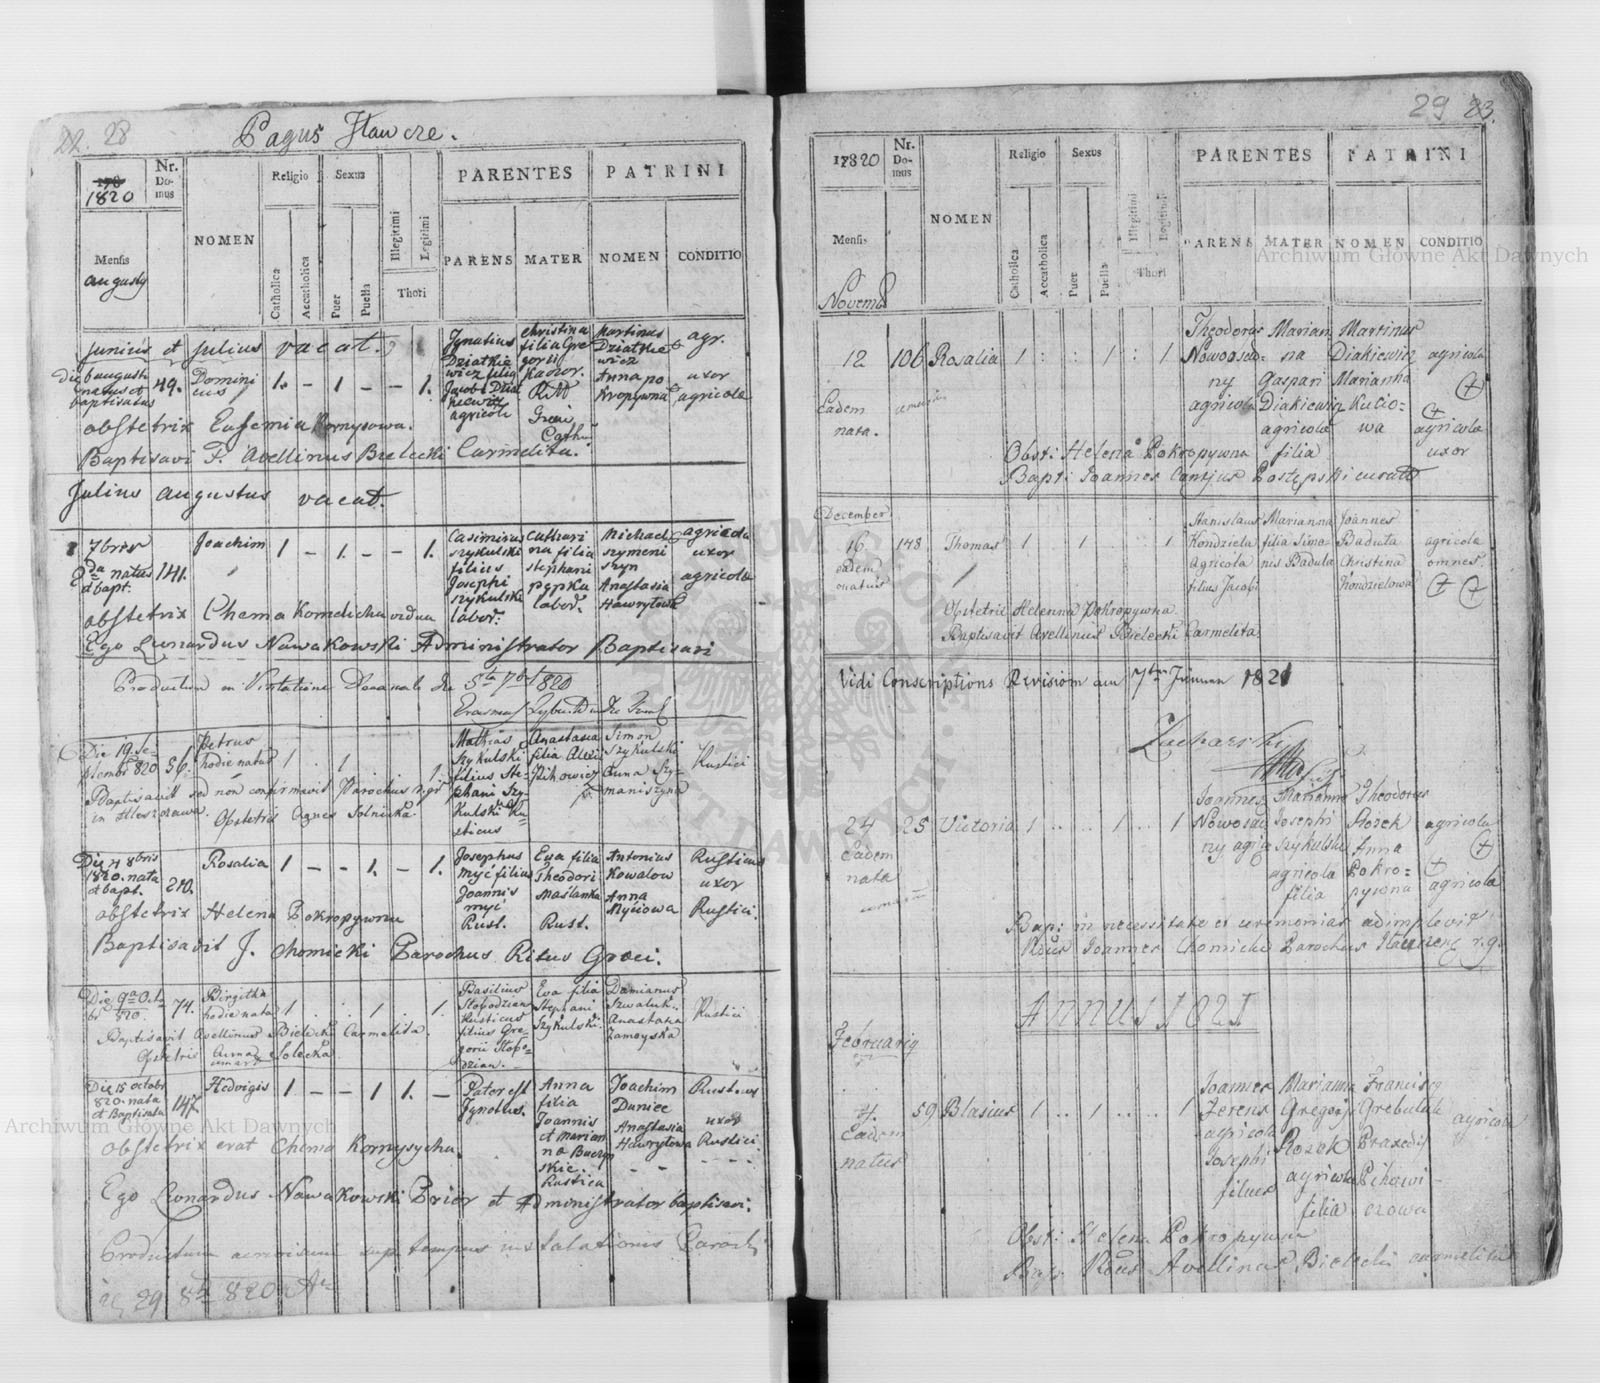 22. 28
Pagus Stawcze.
1820
Nr. Domus
NOMEN
Religio
Sexus
PARENTES
PATRINI
Mensis
augusty
Catholica
Accatholica
Puer
Puella
Illegitimi
Legitimi
Thori
PARENS
MATER
NOMEN
CONDITIO
Junius et Julius vacat.
Die 6 augusti
natus et
baptisatus
49.
Domini
cus
1. – 1 – – 1.
Ignatius
Dziatkie
wicz filius
Jacobi Dziat
kiewicz
agricola
Christina
filia Gre
gorii
Martinus
Dziatkie
wicz
Anna Po
kropywna
agr.
uxor
agricola
obstetrix Eufemia Kornysowa.
Baptisavi F. Avellinus Bielecki Carmelita.
Julius augustus vacat.
7bris
2da natus
et bapt.
141.
Joachim
1 – 1. – – 1.
Casimirus
Szykulski
filius
Josephi
Szykulski
labor.
Cathari
na filia
Stephani
Pępka
labor.
Michael
Szymeni
szyn
Anastasia
Hawrytowa
agricola
uxor
agricola
obstetrix Chema Komelicha vidua
Ego Leonardus Nawakowski Administrator Baptisavi
Productum in Visitatione Decanali die 5ta 7bris 1820
Die 19. Se-
ptembr 820
56.
Petrus
hodie natus
1 . 1 . . 1.
Mathias
Szykulski
filius Ste-
phani Szy-
kulski Ru-
sticus
Anastasia
filia Alexii
Pihowicz
Simon
Szykulski
Anna Szy-
maniszyna
Rustici
Baptisavit sed non confirmavit Parochus r. gr.
Obstetrix Agnes Solnicka
Die 7 8bris
1820. nata
et bapt.
270.
Rosalia
1 – – 1. – 1.
Josephus
Myć filius
Joannis
Myć
Rust.
Eva filia
Theodori
Maślanka
Rust.
Antonius
Kowalow
Anna
Myciowa
Rusticus
uxor
Rustici.
obstetrix Helena Pokropywna
Baptisavit J. Chomicki Parochus Ritus Graeci.
Die 9na Octo
br 820.
74.
Birgitha
hodie nata
1 . . 1 . 1.
Basilius
Słobodzian
Rusticus
filius Gre-
gorii Słobo-
dzian.
Eva filia
Stephani
Szykulski
Damianus
Szwaluk
Anastazia
Zamoyska
Rustici
Baptisavit Avellinus Bielecki Carmelita.
Obstetrix Anna Solecka
Die 15 octobr
820. nata
et Baptisata
147.
Hedvigis
1 – – 1 1. –
Pater est
Ignotus.
Anna
filia
Joannis
et Marian
na Buczyn
skie.
Rustica
Joachim
Duniec
Anastasia
Hawrytowa
Rusticus
uxor
Rustici
obstetrix erat Chema Kornysycha.
Ego Leonardus Nawakowski Prior et Administrator baptisavi.
29 8br 820
29 23.
1820
Nr. Domus
NOMEN
Religio
Sexus
PARENTES
PATRINI
Mensis
Novembr
Catholica
Accatholica
Puer
Puella
Illegitimi
Legitimi
Thori
PARENS
MATER
NOMEN
CONDITIO
12
Eadem
nata.
106
Rosalia
1 : : 1 : 1
Theodorus
Nowosa-
ny
agricola
Marian
na
Gaspari
Diakiewicz
agricola
filia
Martinus
Diakiewicz
Marianna
Kucio-
wa
agricola
agricola
uxor
Obst: Helena Pokropywna
Bapt: Joannes Cantjus Postępski curatus
December
16
eadem
natus
148
Thomas
1 . 1 . . 1
Stanislaus
Kondziela
Agricola
filius Jacobi
Marianna
filia Simo-
nis Baduta
Joannes
Baduta
Christina
Kondzielowa
agricola
omnes.
Obstetrix Helenna Pokropywna.
Baptisavit Avellinus Bielecki Carmelita.
Vidi Conscriptions Revision am 7ten Jänner 1821
Zacharski
24
Eadem
nata
25
Victoria
1 . . 1 . 1
Joannes
Nowosad
ny agricola
Marianna
Josephi
Szykulski
agricola
filia
Theodorus
Rozek
Anna
Pokro-
pywna
agricola
agricola
Bap: in necessitate et ceremonias adimplevit
Rdus Joannes Chomicki Parochus Stawczensis r. g.
ANNUS 1821
Februarij
7.
Eadem
natus
59
Blasius
1 . . 1 . . 1
Joannes
Ferens
agricola
Josephi
filius
Marianna
Gregorji
Rozek
agricola
filia
Francis
Grebulak
Praxedis
Pihowi-
czowa
agricola
Obst: Helena Pokropywna
Bap: Rdus Avellinus Bielecki carmelita
Archiwum Główne Akt Dawnych
Archiwum Główne Akt Dawnych